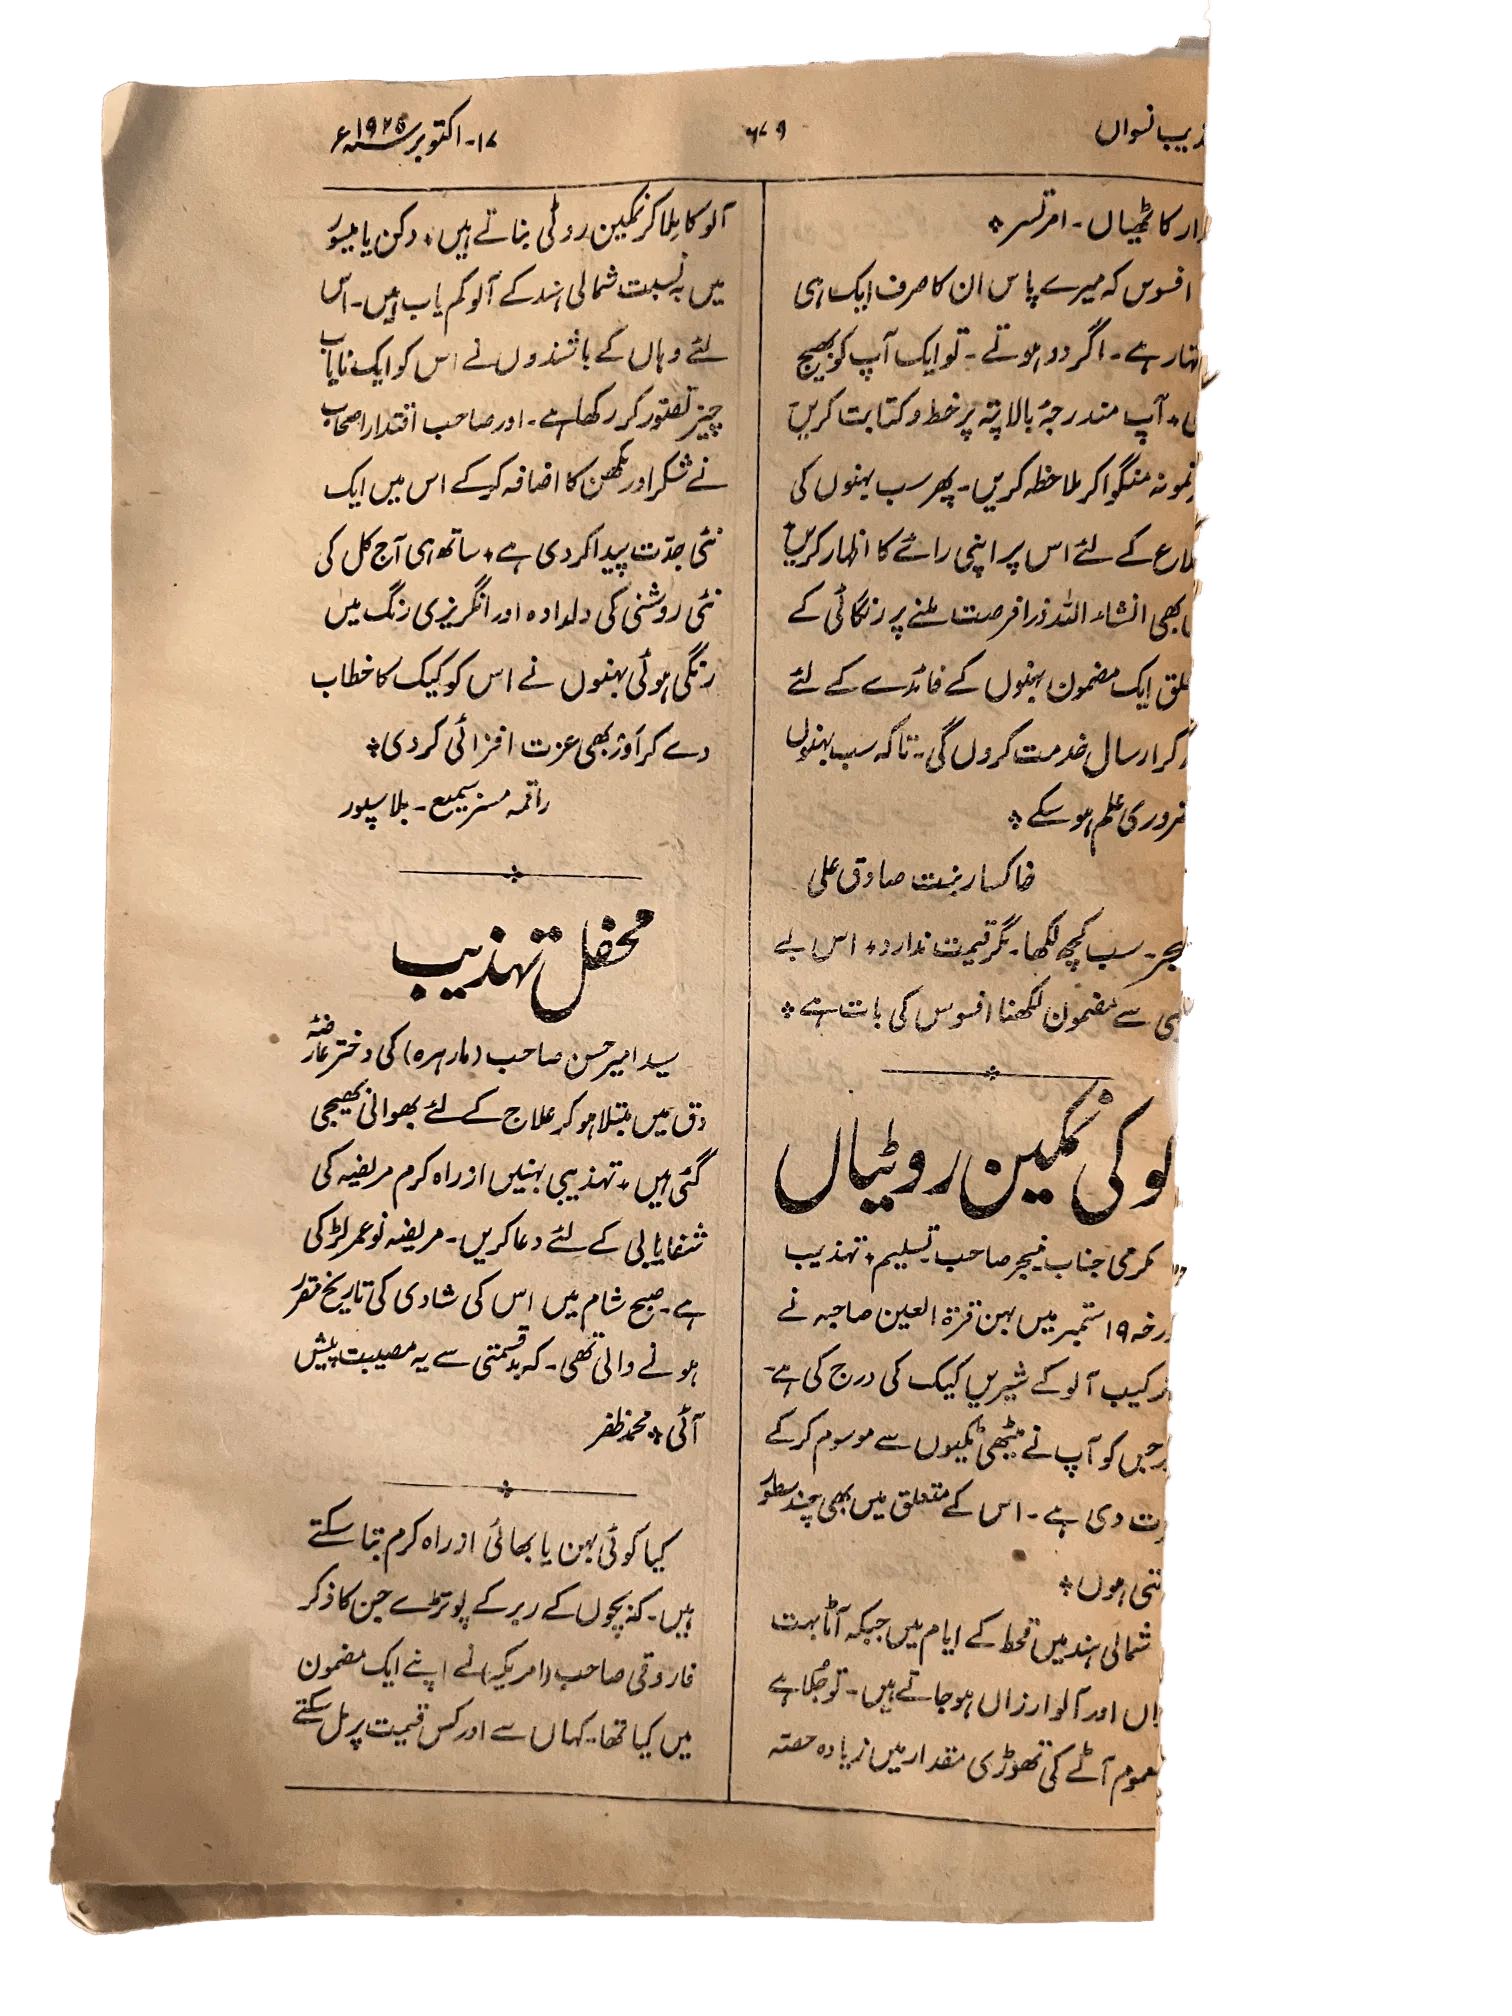 تہذیب نسواں
۶۷۹
۱۷۔ اکتوبر سنہ ۱۹۲۵ء
کاٹھیاں۔ امرتسر ٭
افسوس کہ میرے پاس ان کا صرف ایک ہی
ہے۔ اگر دو ہوتے۔ تو ایک آپ کو بھیج
آپ مندرجۂ بالا پتہ پر خط و کتابت کریں
نمونہ منگوا کر ملاحظہ کریں۔ پھر سب بہنوں کی
کے لئے اس پر اپنی رائے کا اظہار کریں
بھی انشاء اللہ ذرا فرصت ملنے پر رنگائی کے
ایک مضمون بہنوں کے فائدے کے لئے
کر ارسال خدمت کروں گی۔ تاکہ سب بہنوں
ضروری علم ہو سکے ٭
خاکسار بنت صادق علی
سب کچھ لکھا۔ مگر قیمت ندارد٭ اس بے
سے مضمون لکھنا افسوس کی بات ہے ٭
لو کی نمکین روٹیاں
مکرمی جناب منیجر صاحب۔ تسلیم٭ تہذیب
۱۹ ستمبر میں بہن قرۃ العین صاحبہ نے
ترکیب آلو کے شیریں کیک کی درج کی ہے۔
جس کو آپ نے میٹھی ٹکیوں سے موسوم کرکے
دی ہے۔ اس کے متعلق میں بھی چند سطور
ہوں ٭
شمالی ہند میں قحط کے ایام میں جبکہ آٹا بہت
اور آلو ارزاں ہو جاتے ہیں۔ تو
آٹے کی تھوڑی مقدار میں زیادہ حصتہ
آلو کا ملا کر نمکین روٹی بناتے ہیں٭ دکن یا میسور
میں بہ نسبت شمالی ہند کے آلو کم یاب ہیں۔ اس
لئے وہاں کے باشندوں نے اس کو ایک نایاب
چیز تصور کر رکھا ہے۔ اور صاحب اقتدار اصحاب
نے شکر اور مکھن کا اضافہ کرکے اس میں ایک
نئی جدّت پیدا کر دی ہے٭ ساتھ ہی آج کل کی
نئی روشنی کی دلدادہ اور انگریزی رنگ میں
رنگی ہوئی بہنوں نے اس کو کیک کا خطاب
دے کر اَور بھی عزت افزائی کر دی ٭
راقمہ مسز سمیع۔ بلاسپور
محفل تہذیب
سید امیر حسن صاحب (مارہرہ) کی دختر عارضۂ
دق میں مبتلا ہو کر علاج کے لئے بھوالی بھیجی
گئی ہیں٭ تہذیبی بہنیں از راہ کرم مریضہ کی
شفایابی کے لئے دعا کریں۔ مریضہ نو عمر لڑکی
ہے۔ صبح شام میں اس کی شادی کی تاریخ مقرر
ہونے والی تھی۔ کہ بدقسمتی سے یہ مصیبت پیش
آئی ٭ محمد ظفر
کیا کوئی بہن یا بھائی از راہ کرم بتا سکتے
ہیں۔ کہ بچوں کے ربر کے پوتڑے جن کا ذکر
فاروقی صاحب (امریکہ) نے اپنے ایک مضمون
میں کیا تھا۔ کہاں سے اور کس قیمت پر مل سکتے